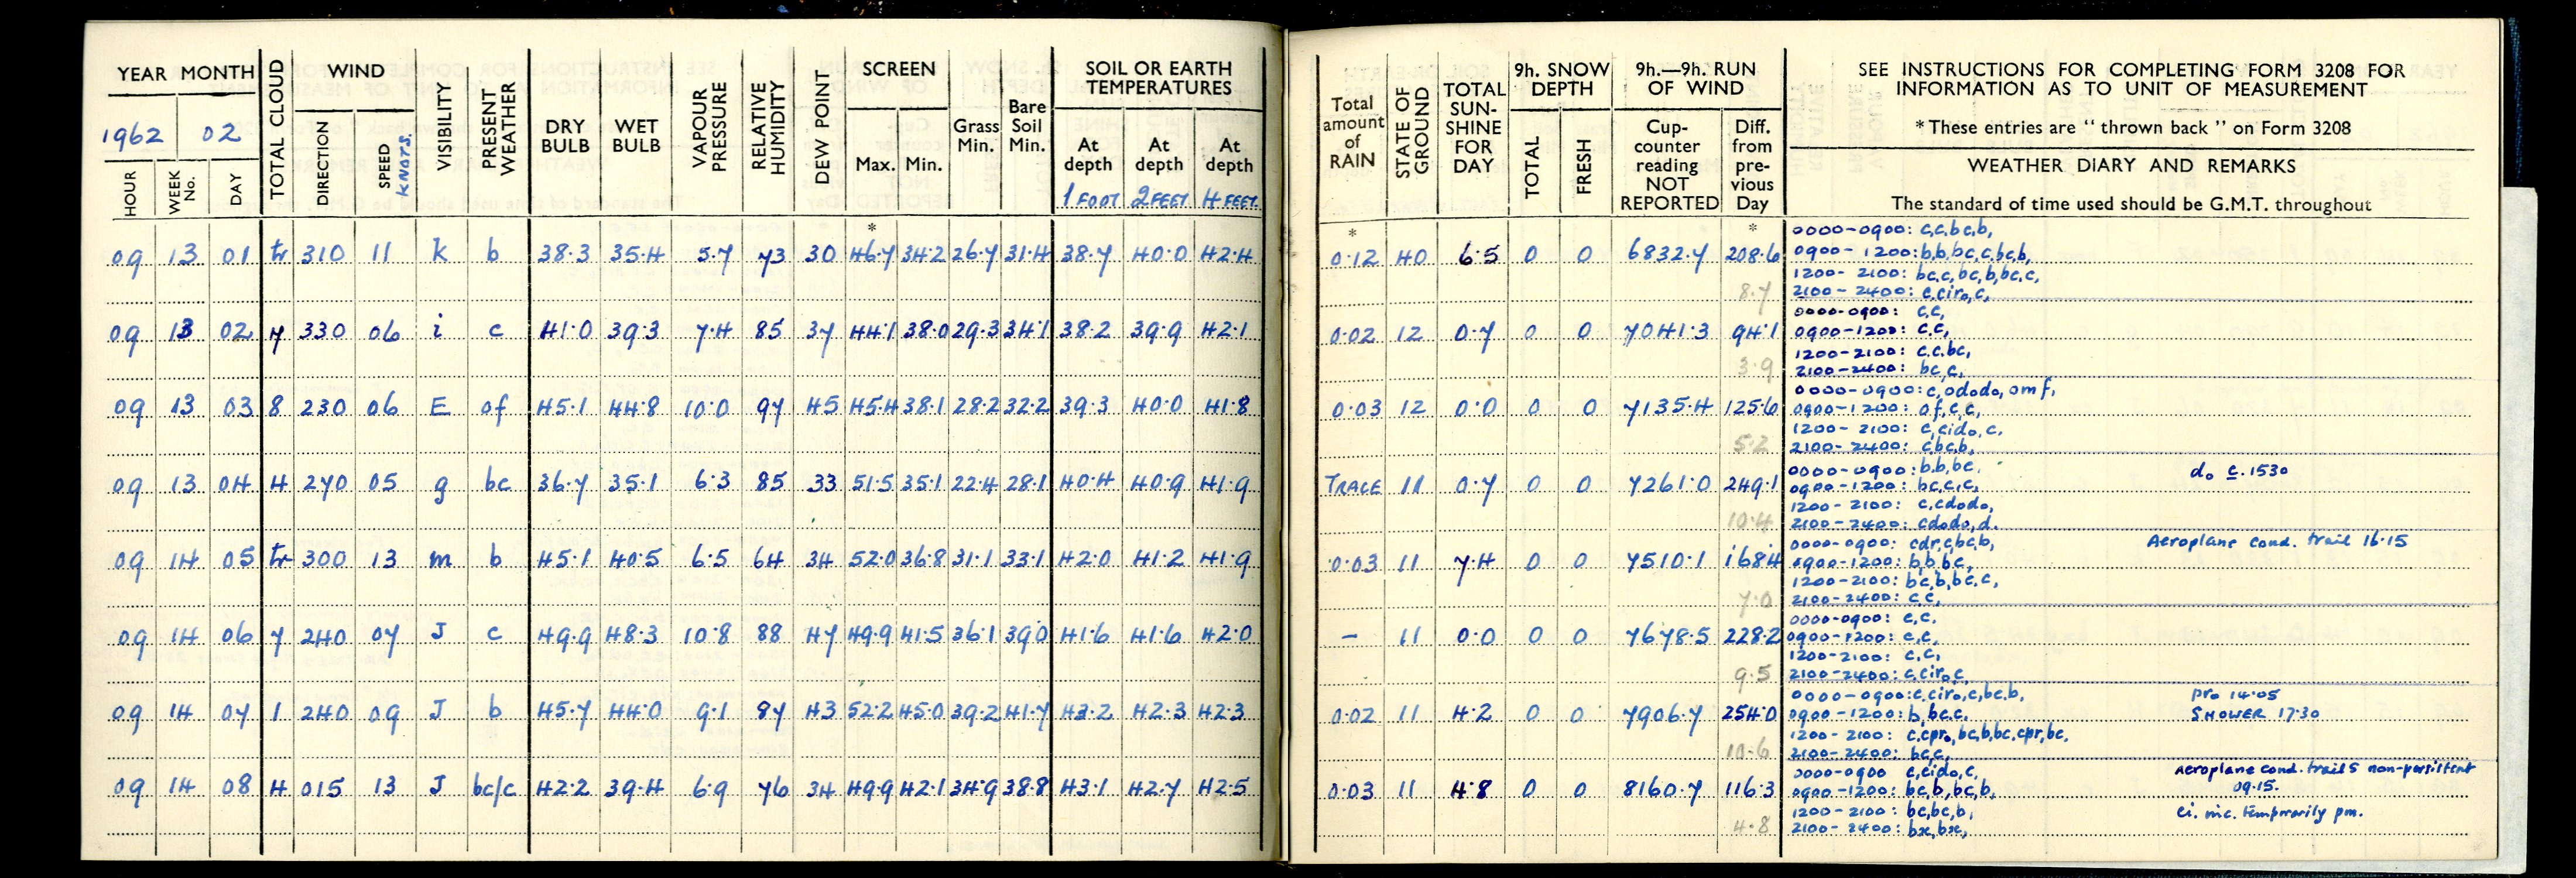 YEAR MONTH TOTAL CLOUD WIND VISIBILITY PRESENT WEATHER DRY BULB WET BULB VAPOUR PRESSURE RELATIVE HUMIDITY DEW POINT SCREEN Grass Min. Bare Soil Min. SOIL OR EARTH TEMPERATURES
1962 02 DIRECTION SPEED KNOTS. Max. Min. At depth At depth At depth
HOUR WEEK No. DAY 1 FOOT 2 FEET 4 FEET
*
09 13 01 tr 310 11 k b 38.3 35.4 5.7 73 30 46.7 34.2 26.7 31.4 38.7 40.0 42.4
09 13 02 7 330 06 i c 41.0 39.3 7.4 85 37 44.1 38.0 29.3 34.1 38.2 39.9 42.1
09 13 03 8 230 06 E of 45.1 44.8 10.0 97 45 45.4 38.1 28.2 32.2 39.3 40.0 41.8
09 13 04 4 270 05 g bc 36.7 35.1 6.3 85 33 51.5 35.1 22.4 28.1 40.4 40.9 41.9
09 14 05 tr 300 13 m b 45.1 40.5 6.5 64 34 52.0 36.8 31.1 33.1 42.0 41.2 41.9
09 14 06 7 240 07 J c 49.9 48.3 10.8 88 47 49.9 41.5 36.1 39.0 41.6 41.6 42.0
09 14 07 1 240 09 J b 45.7 44.0 9.1 87 43 52.2 45.0 39.2 41.7 43.2 42.3 42.3
09 14 08 4 015 13 J bc/c 42.2 39.4 6.9 76 34 49.9 42.1 34.9 38.8 43.1 42.7 42.5
Total amount of RAIN STATE OF GROUND TOTAL SUN-SHINE FOR DAY 9h. SNOW DEPTH 9h.—9h. RUN OF WIND SEE INSTRUCTIONS FOR COMPLETING FORM 3208 FOR
INFORMATION AS TO UNIT OF MEASUREMENT
TOTAL FRESH Cup-counter reading NOT REPORTED Diff. from pre-vious Day * These entries are "thrown back" on Form 3208
WEATHER DIARY AND REMARKS
The standard of time used should be G.M.T. throughout
* *
0000-0900: c,c,bc,b,
0.12 40 6.5 0 0 6832.7 208.6 0900-1200: b,b,bc,c,bc,b,
1200-2100: bc,c,bc,b,bc,c,
8.7 2100-2400: c,ciro,c,
0000-0900: c,c,
0.02 12 0.7 0 0 7041.3 94.1 0900-1200: c,c,
1200-2100: c,c,bc,
3.9 2100-2400: bc,c,
0000-0900: c,ododo,omf,
0.03 12 0.0 0 0 7135.4 125.6 0900-1200: of,c,c,
1200-2100: c,cido,c,
5.2 2100-2400: cbcb,
0000-0900: b,b,bc, do c.1530
TRACE 11 0.7 0 0 7261.0 249.1 0900-1200: bc,c,c,
1200-2100: c,cdodo,
10.4 2100-2400: cdodo,d.
0000-0900: cdr,c,bc,b, Aeroplane cond. trail 16.15
0.03 11 7.4 0 0 7510.1 168.4 0900-1200: b,b,bc,
1200-2100: bc,b,bc,c,
7.0 2100-2400: c,c,
0000-0900: c,c,
- 11 0.0 0 0 7678.5 228.2 0900-1200: c,c,
1200-2100: c,c,
9.5 2100-2400: c,ciro,c,
0000-0900: c,ciro,c,bc,b, pro 14.05
0.02 11 4.2 0 0 7906.7 254.0 0900-1200: b,bc,c, SHOWER 17.30
1200-2100: c,cpro,bc,b,bc,cpr,bc,
10.6 2100-2400: bc,c,
0000-0900 c,cido,c, Aeroplane cond. trails non-persistent
0.03 11 4.8 0 0 8160.7 116.3 0900-1200: bc,b,bc,b, 09.15.
1200-2100: bc,bc,b, Ci. inc. temporarily pm.
4.8 2100-2400: